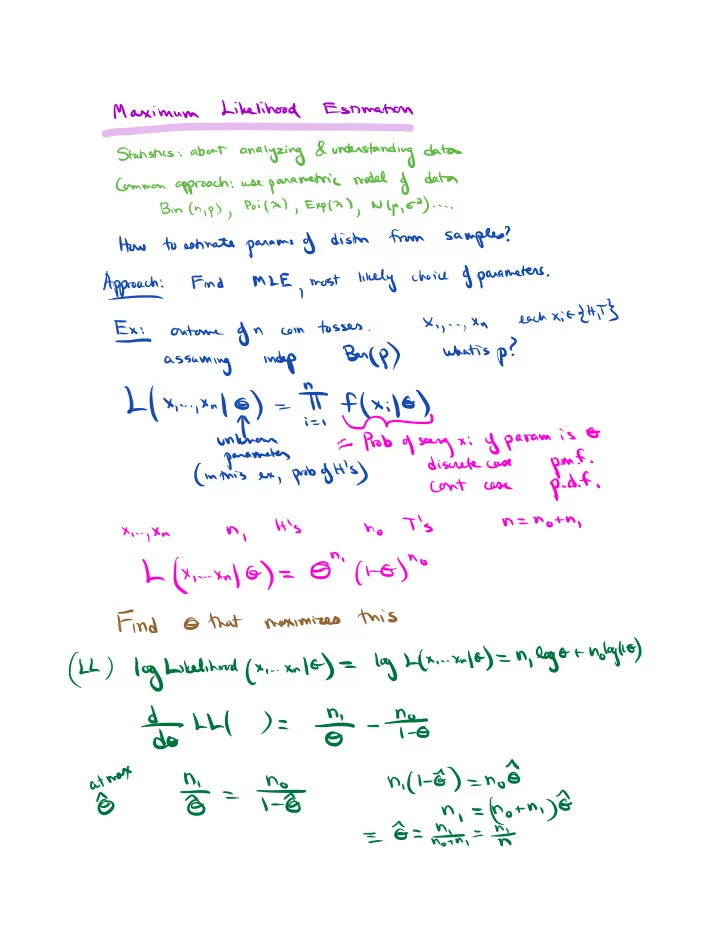 Maximum Likelihood Estimation
Statistics: about analyzing & understanding data
Common approach: use parametric model of data
Bin (n,p), Poi(λ), Exp(λ), N(μ,σ²)....
How to estimate params of distn from samples?
Approach: Find MLE, most likely choice of parameters.
Ex: outcome of n coin tosses. x₁,..,xₙ each xᵢ∈{H,T}
assuming indep Ber(p) what is p?
L(x₁,...,xₙ|θ) = ∏ᵢ₌₁ⁿ f(xᵢ|θ)
unknown parameters
(in this ex, prob of H's)
= Prob of seeing xᵢ if param is θ
discrete case p.m.f.
cont case p.d.f.
x₁..,xₙ n₁ H's n₀ T's n=n₀+n₁
L(x₁...xₙ|θ) = θ^n₁ (1-θ)^n₀
Find θ that maximizes this
(LL) log Likelihood (x₁...xₙ|θ) = log L(x₁...xₙ|θ) = n₁ log θ + n₀ log(1-θ)
d/dθ LL( ) = n₁/θ - n₀/(1-θ)
at max θ̂ n₁/θ̂ = n₀/(1-θ̂) n₁(1-θ̂) = n₀θ̂
n₁ = (n₀+n₁)θ̂
≡ θ̂ = n₁/(n₀+n₁) = n₁/n